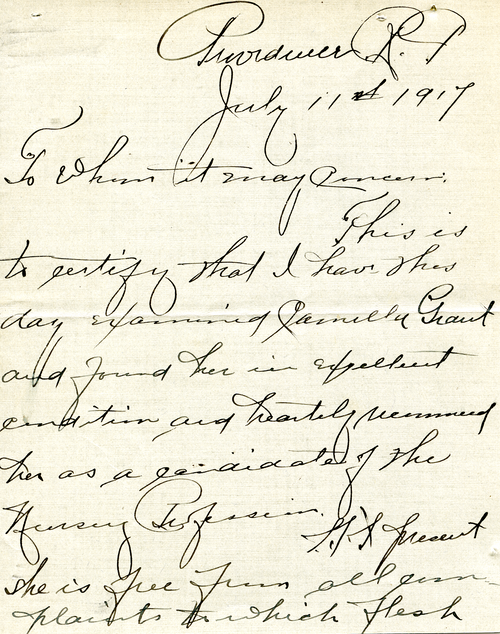 Providence R. I
July 11st 1917
To Whom it may Concern.
This is
to certify that I have this
day examined Camilla Grant
and found her in excellent
condition and heartely recommend
her as a candidate of the
Nursing Profession.
At present
she is free from all com-
plaints to which flesh